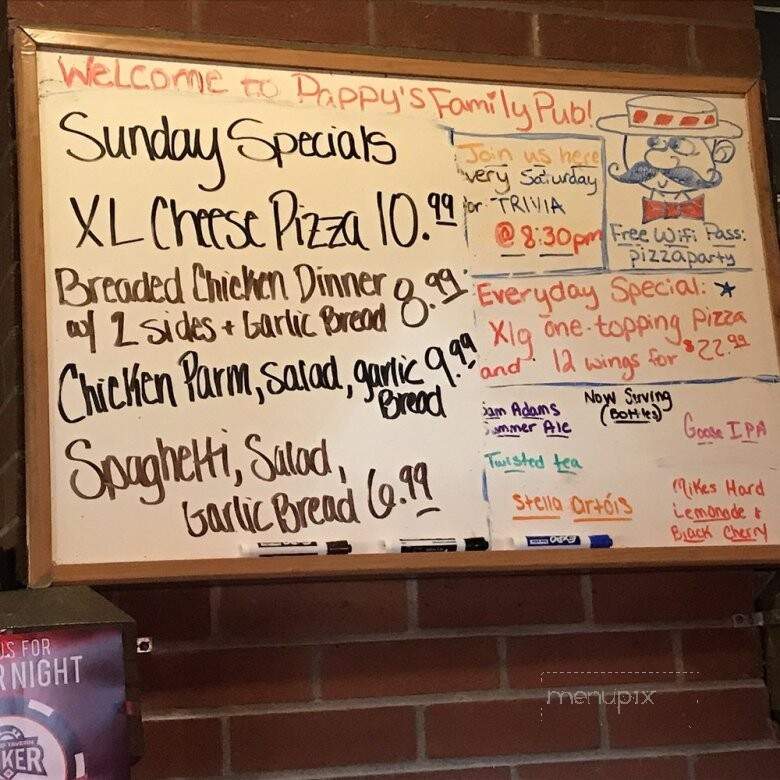 Welcome to Pappy's Family Pub!
Sunday Specials
XL Cheese Pizza 10.99
Breaded Chicken Dinner 8.99
w/ 2 sides + Garlic Bread
Chicken Parm, salad, garlic 9.99
Bread
Spaghetti, Salad,
Garlic Bread 6.99
Join us here
very Saturday
for TRIVIA
@ 8:30pm
Free WiFi Pass:
pizzaparty
Everyday Special: *
Xlg one-topping Pizza
and 12 wings for $22.99
Now Serving
(Bottles)
Sam Adams
Summer Ale
Twisted tea
Stella Artois
Goose IPA
Mikes Hard
Lemonade &
Black Cherry
EXPO
US FOR
R NIGHT
TAVERN
KER
menupix